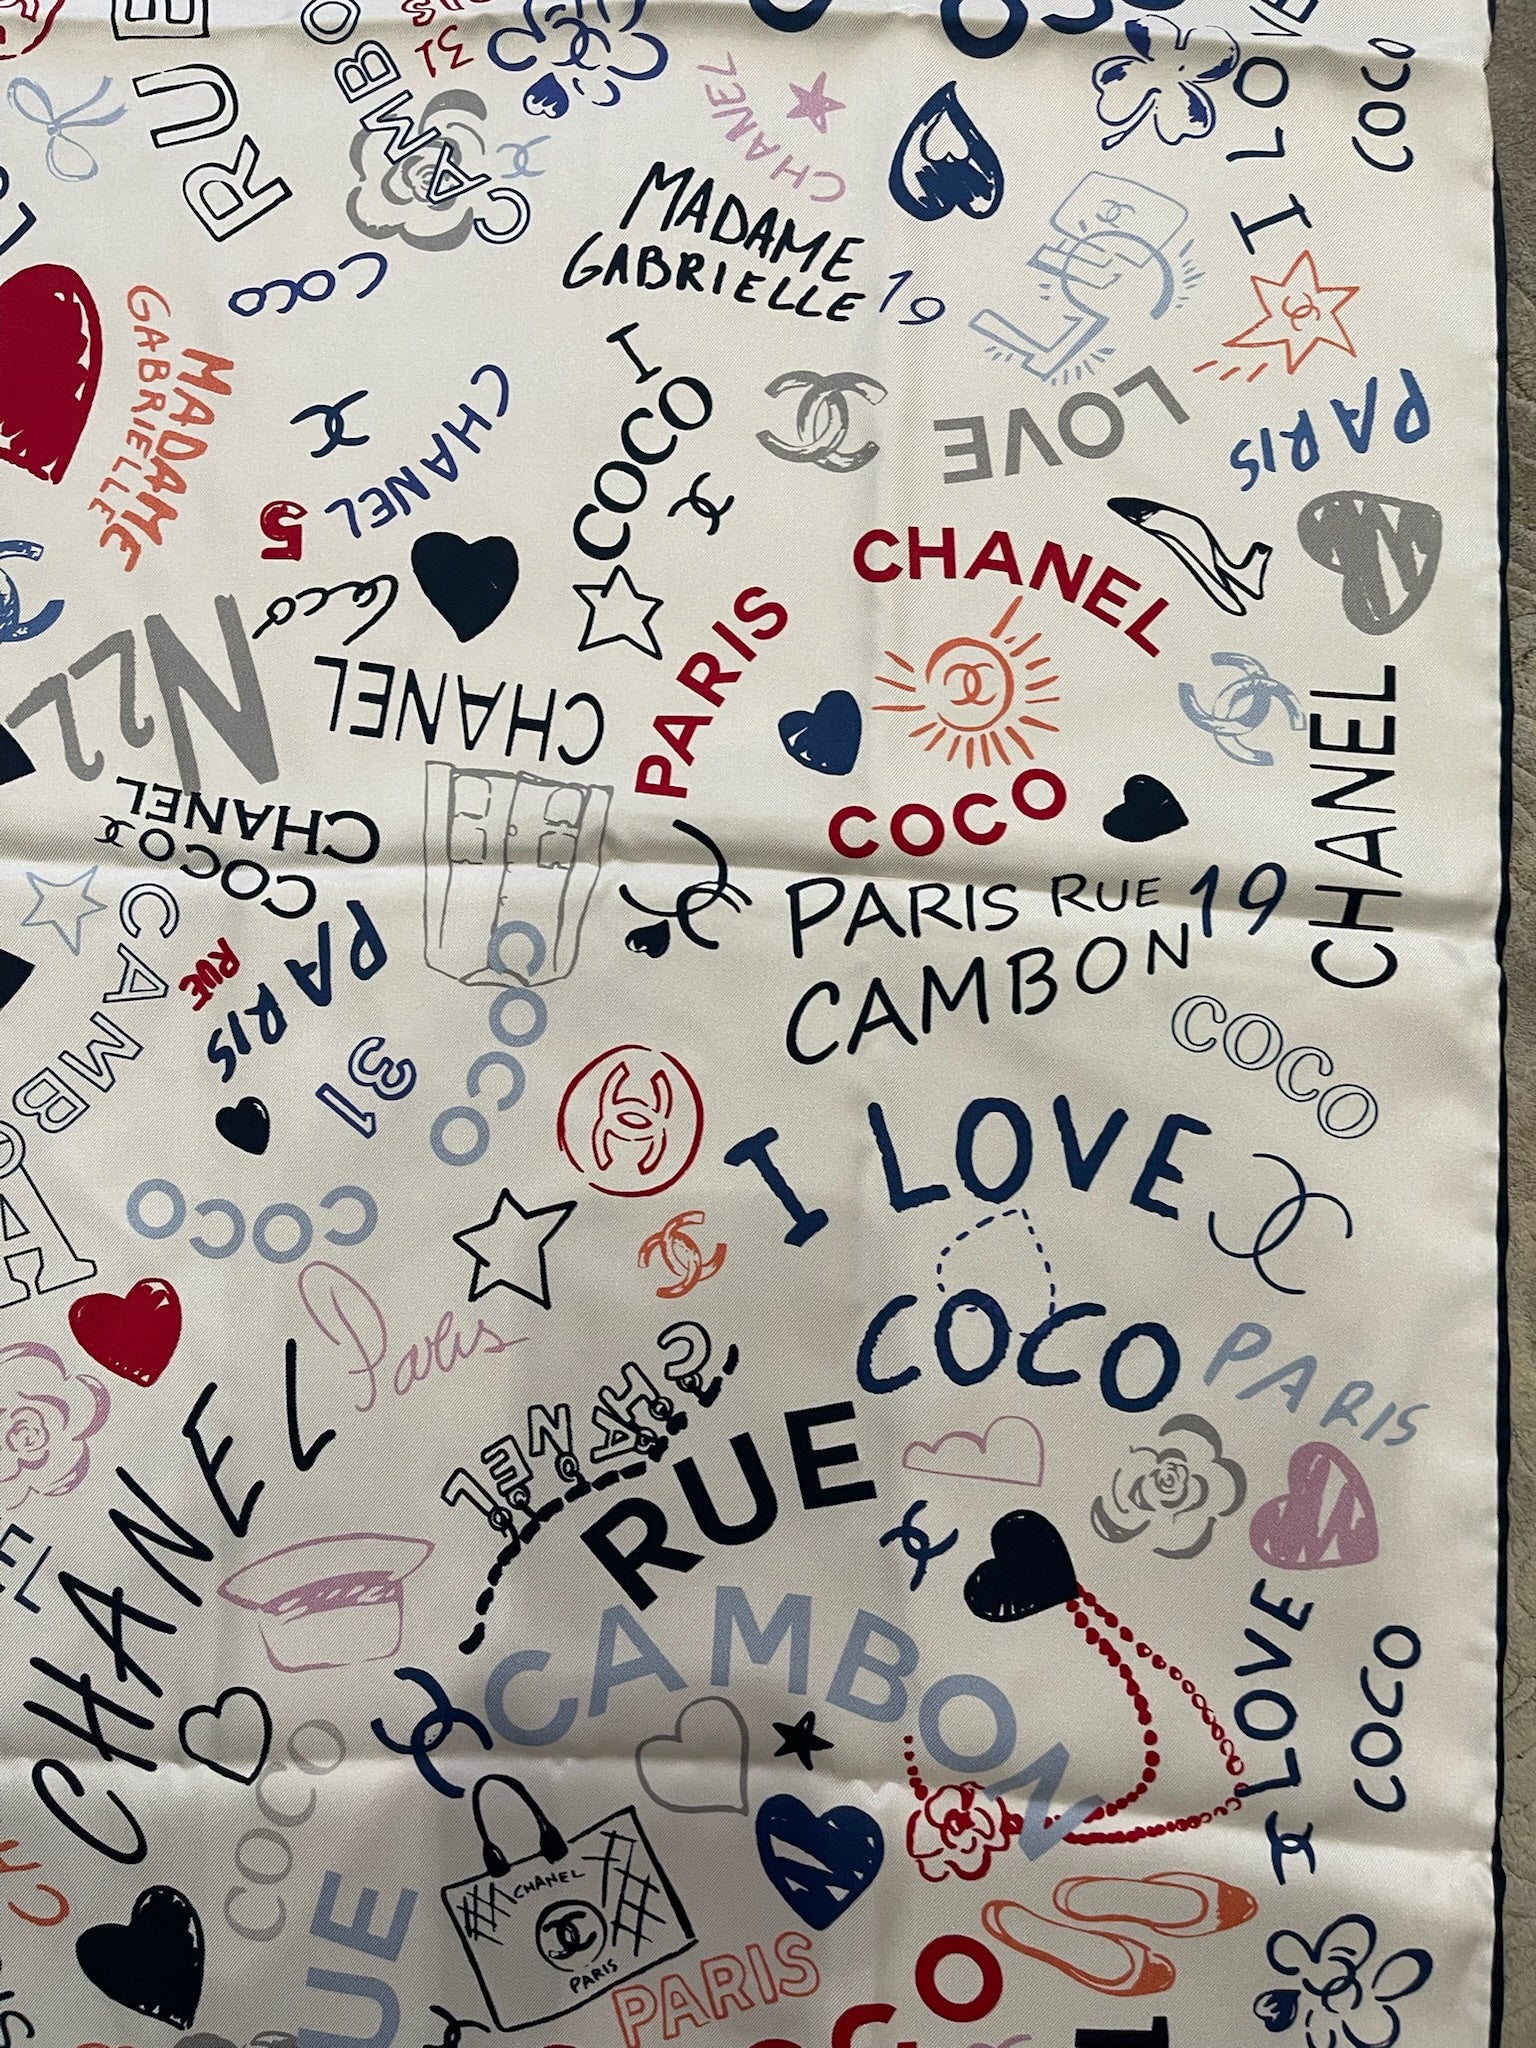 RUE
CAMBO
31
CHANEL
I LOVE
COCO
MADAME
GABRIELLE
19
COCO
MADAME
GABRIELLE
CHANEL
5
I
COCO
LOVE
PARIS
CHANEL
PARIS
COCO
Coco
N22
CHANEL
CHANEL
COCO
CAMBO
PARIS
RUE
31
COCO
COCO
PARIS RUE 19
CAMBON
CHANEL
COCO
I LOVE
COCO
PARIS
Paris
CHANEL
CHANEL
RUE
CAMBON
COCO
I LOVE
COCO
CHANEL
PARIS
UE
PARIS